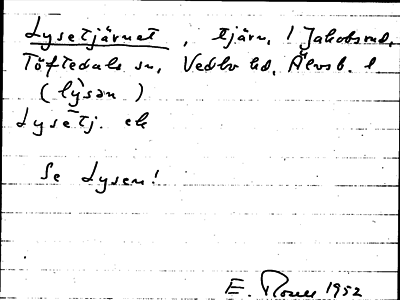 Lysetjärnet, tjärn, 1 Jakobsrud,
Töftedals sn, Vedbo hd, Älvsb. l
(lysan)
Lysetj. ek
Se Lysen!
E. 1952